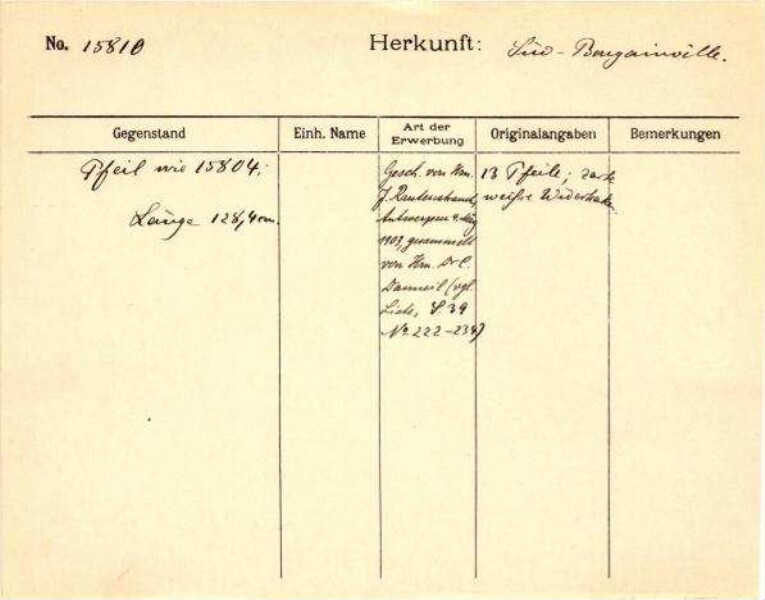 No. 15810
Herkunft: Süd-Bougainville.
Gegenstand
Einh. Name
Art der
Erwerbung
Originalangaben
Bemerkungen
Pfeil wie 15804;
Länge 128,4 cm.
Gesch. von Hrn.
J. Rautenstrauch,
Antwerpen 4. März
1903, gesammelt
von Hrn. Dr C.
Danneil (vgl.
Liste, S 39
No. 222-234)
13 Pfeile;
weisse Widerhaken